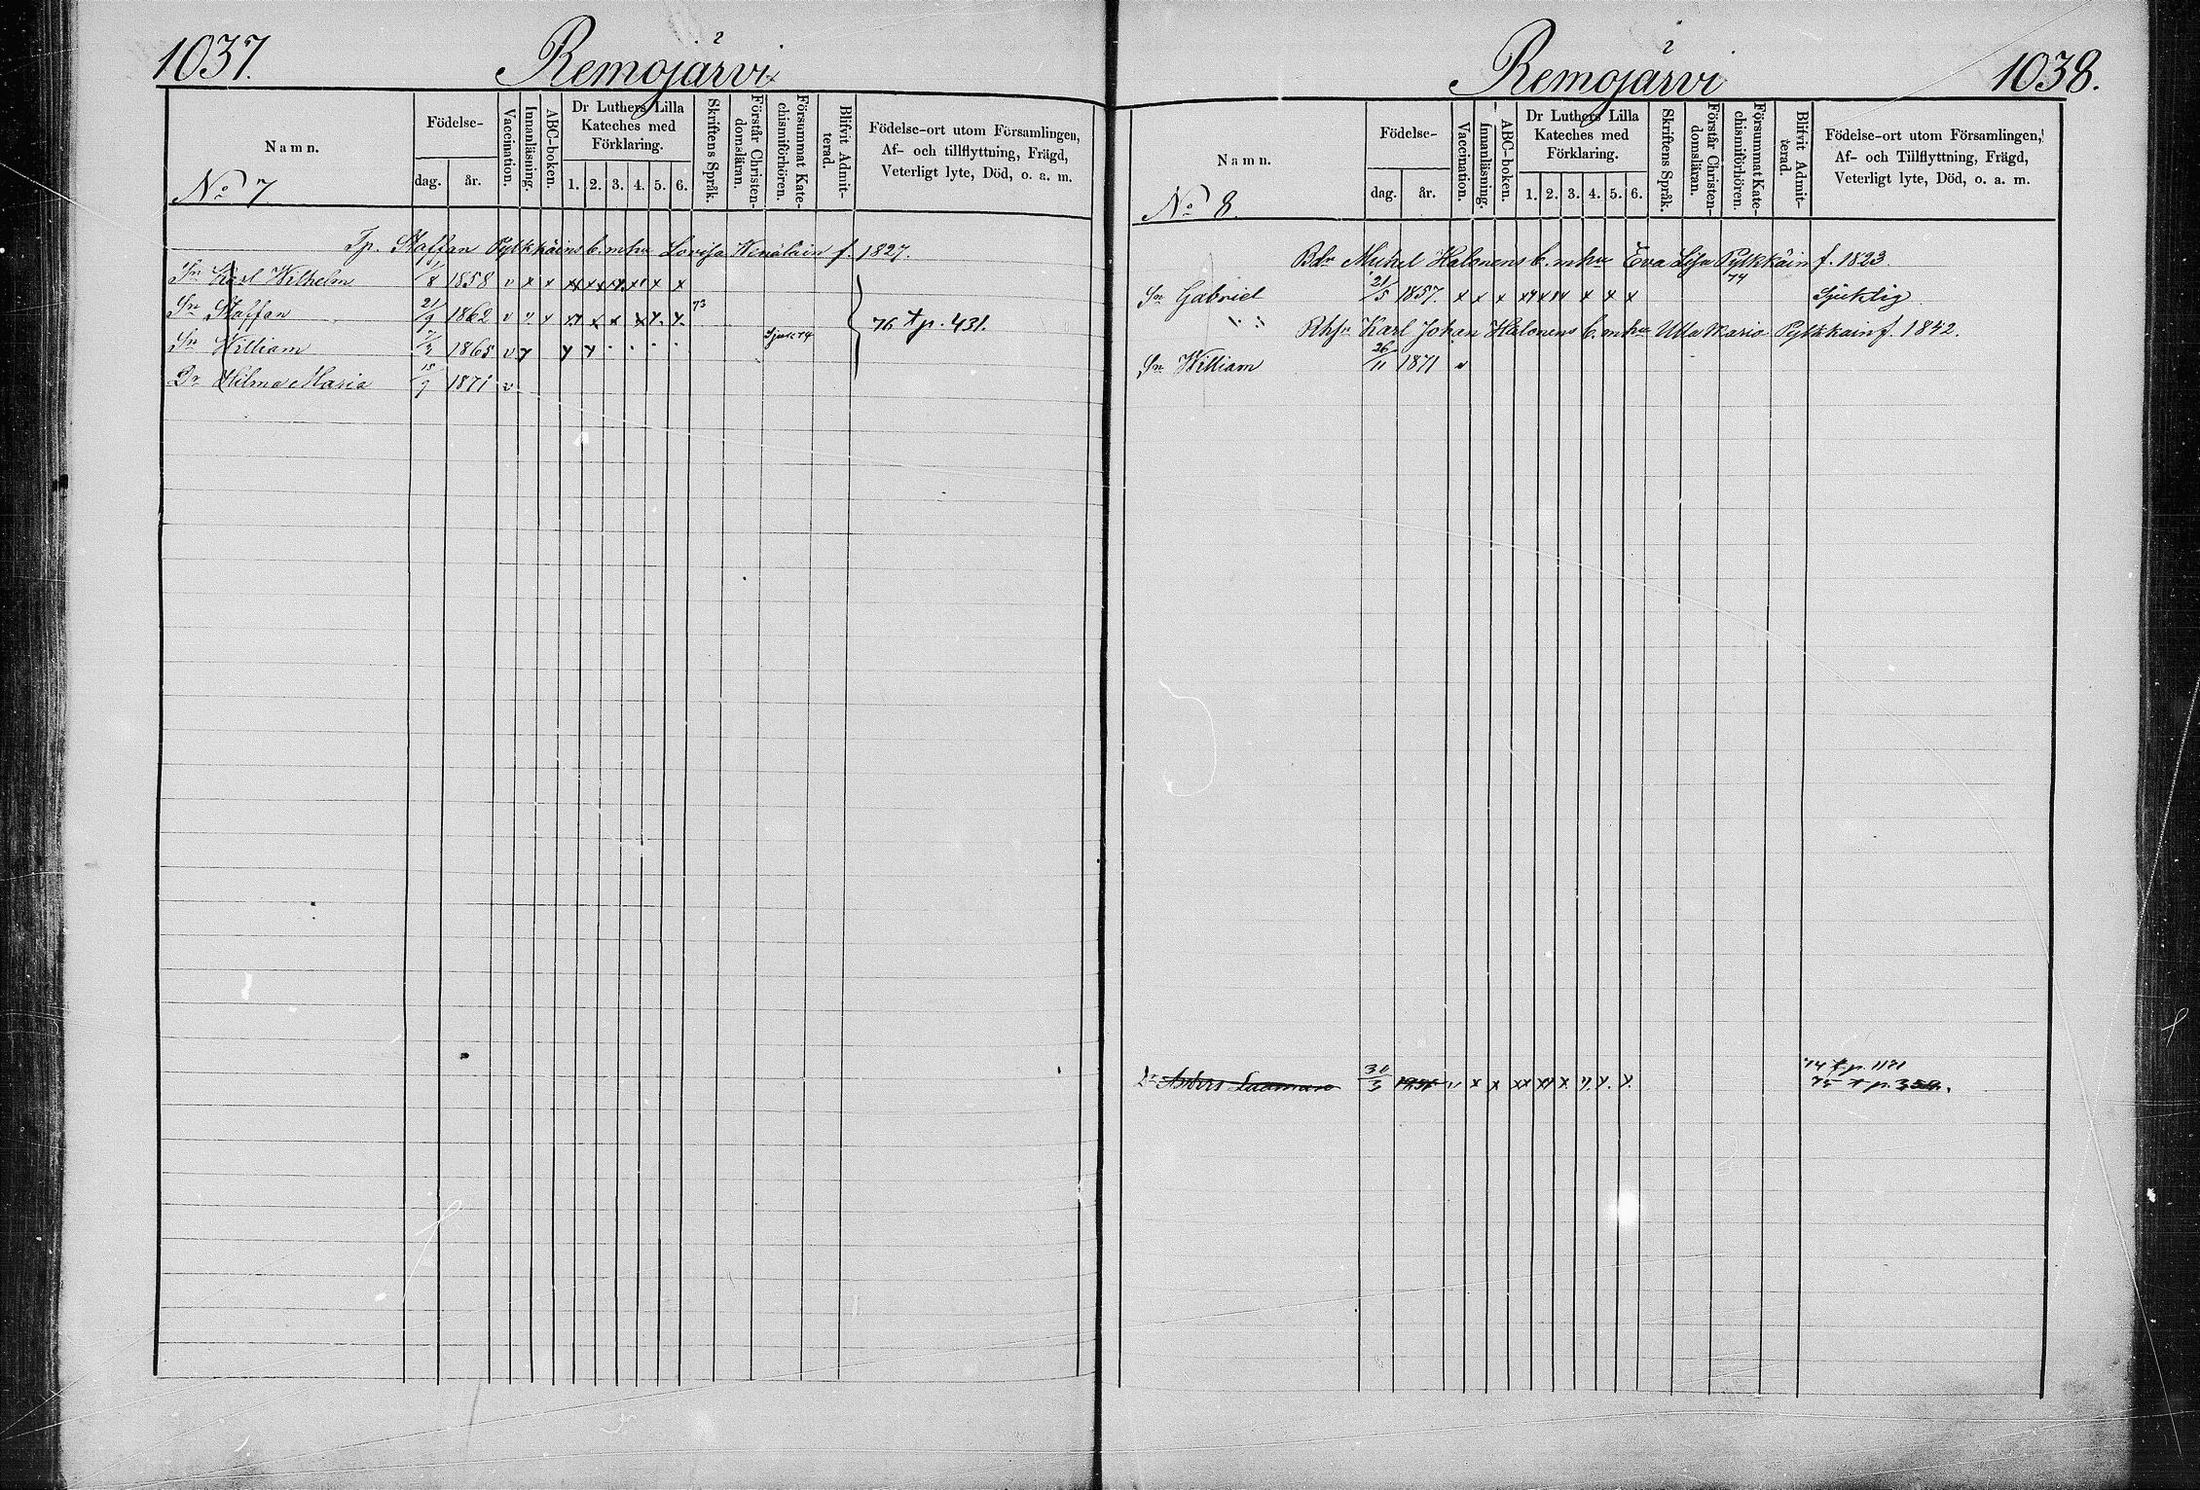 1037.
Remojärvi
2
Namn.
Födelse-
dag.
år.
Vaccination.
Innanläsning.
ABC-boken.
Dr Luthers Lilla
Kateches med
Förklaring.
1. 2. 3. 4. 5. 6.
Skriftens Språk.
Förstår Christen-
domsläran.
Försummat Kate-
chismiförhören.
Blifvit Admit-
terad.
Födelse-ort utom Församlingen,
Af- och tillflyttning, Frägd,
Veterligt lyte, Död, o. a. m.
No 7
Staffan Pylkkäins b. m hu Lovisa f. 1827.
Sn Karl Wilhelm 1/8 1858 v x x x x x x x x
Sn Staffan 21/9 1862 v x x x x x x x 73
76 t p. 431.
Sn William 1865 v x x x Sjuk 74
Dr Hilma Maria 18/9 1871 v
Remojärvi
2
1038.
Namn.
Födelse-
dag.
år.
Vaccination.
Innanläsning.
ABC-boken.
Dr Luthers Lilla
Kateches med
Förklaring.
1. 2. 3. 4. 5. 6.
Skriftens Språk.
Förstår Christen-
domsläran.
Försummat Kate-
chismiförhören.
Blifvit Admit-
terad.
Födelse-ort utom Församlingen,
Af- och Tillflyttning, Frägd,
Veterligt lyte, Död, o. a. m.
No 8.
Mickel Halonens b. m hu Eva Lisa Pylkkäin f. 1823
Sn Gabriel 21/5 1857. x x x x x x x x 74 Sjuklig
Karl Johan Halonens b. m hu Ulla Maria Pylkkäin f. 1842.
Sn William 26/11 1871 v
74 t p.
Anders 31/3 v x x x x x x x x 75 t p.